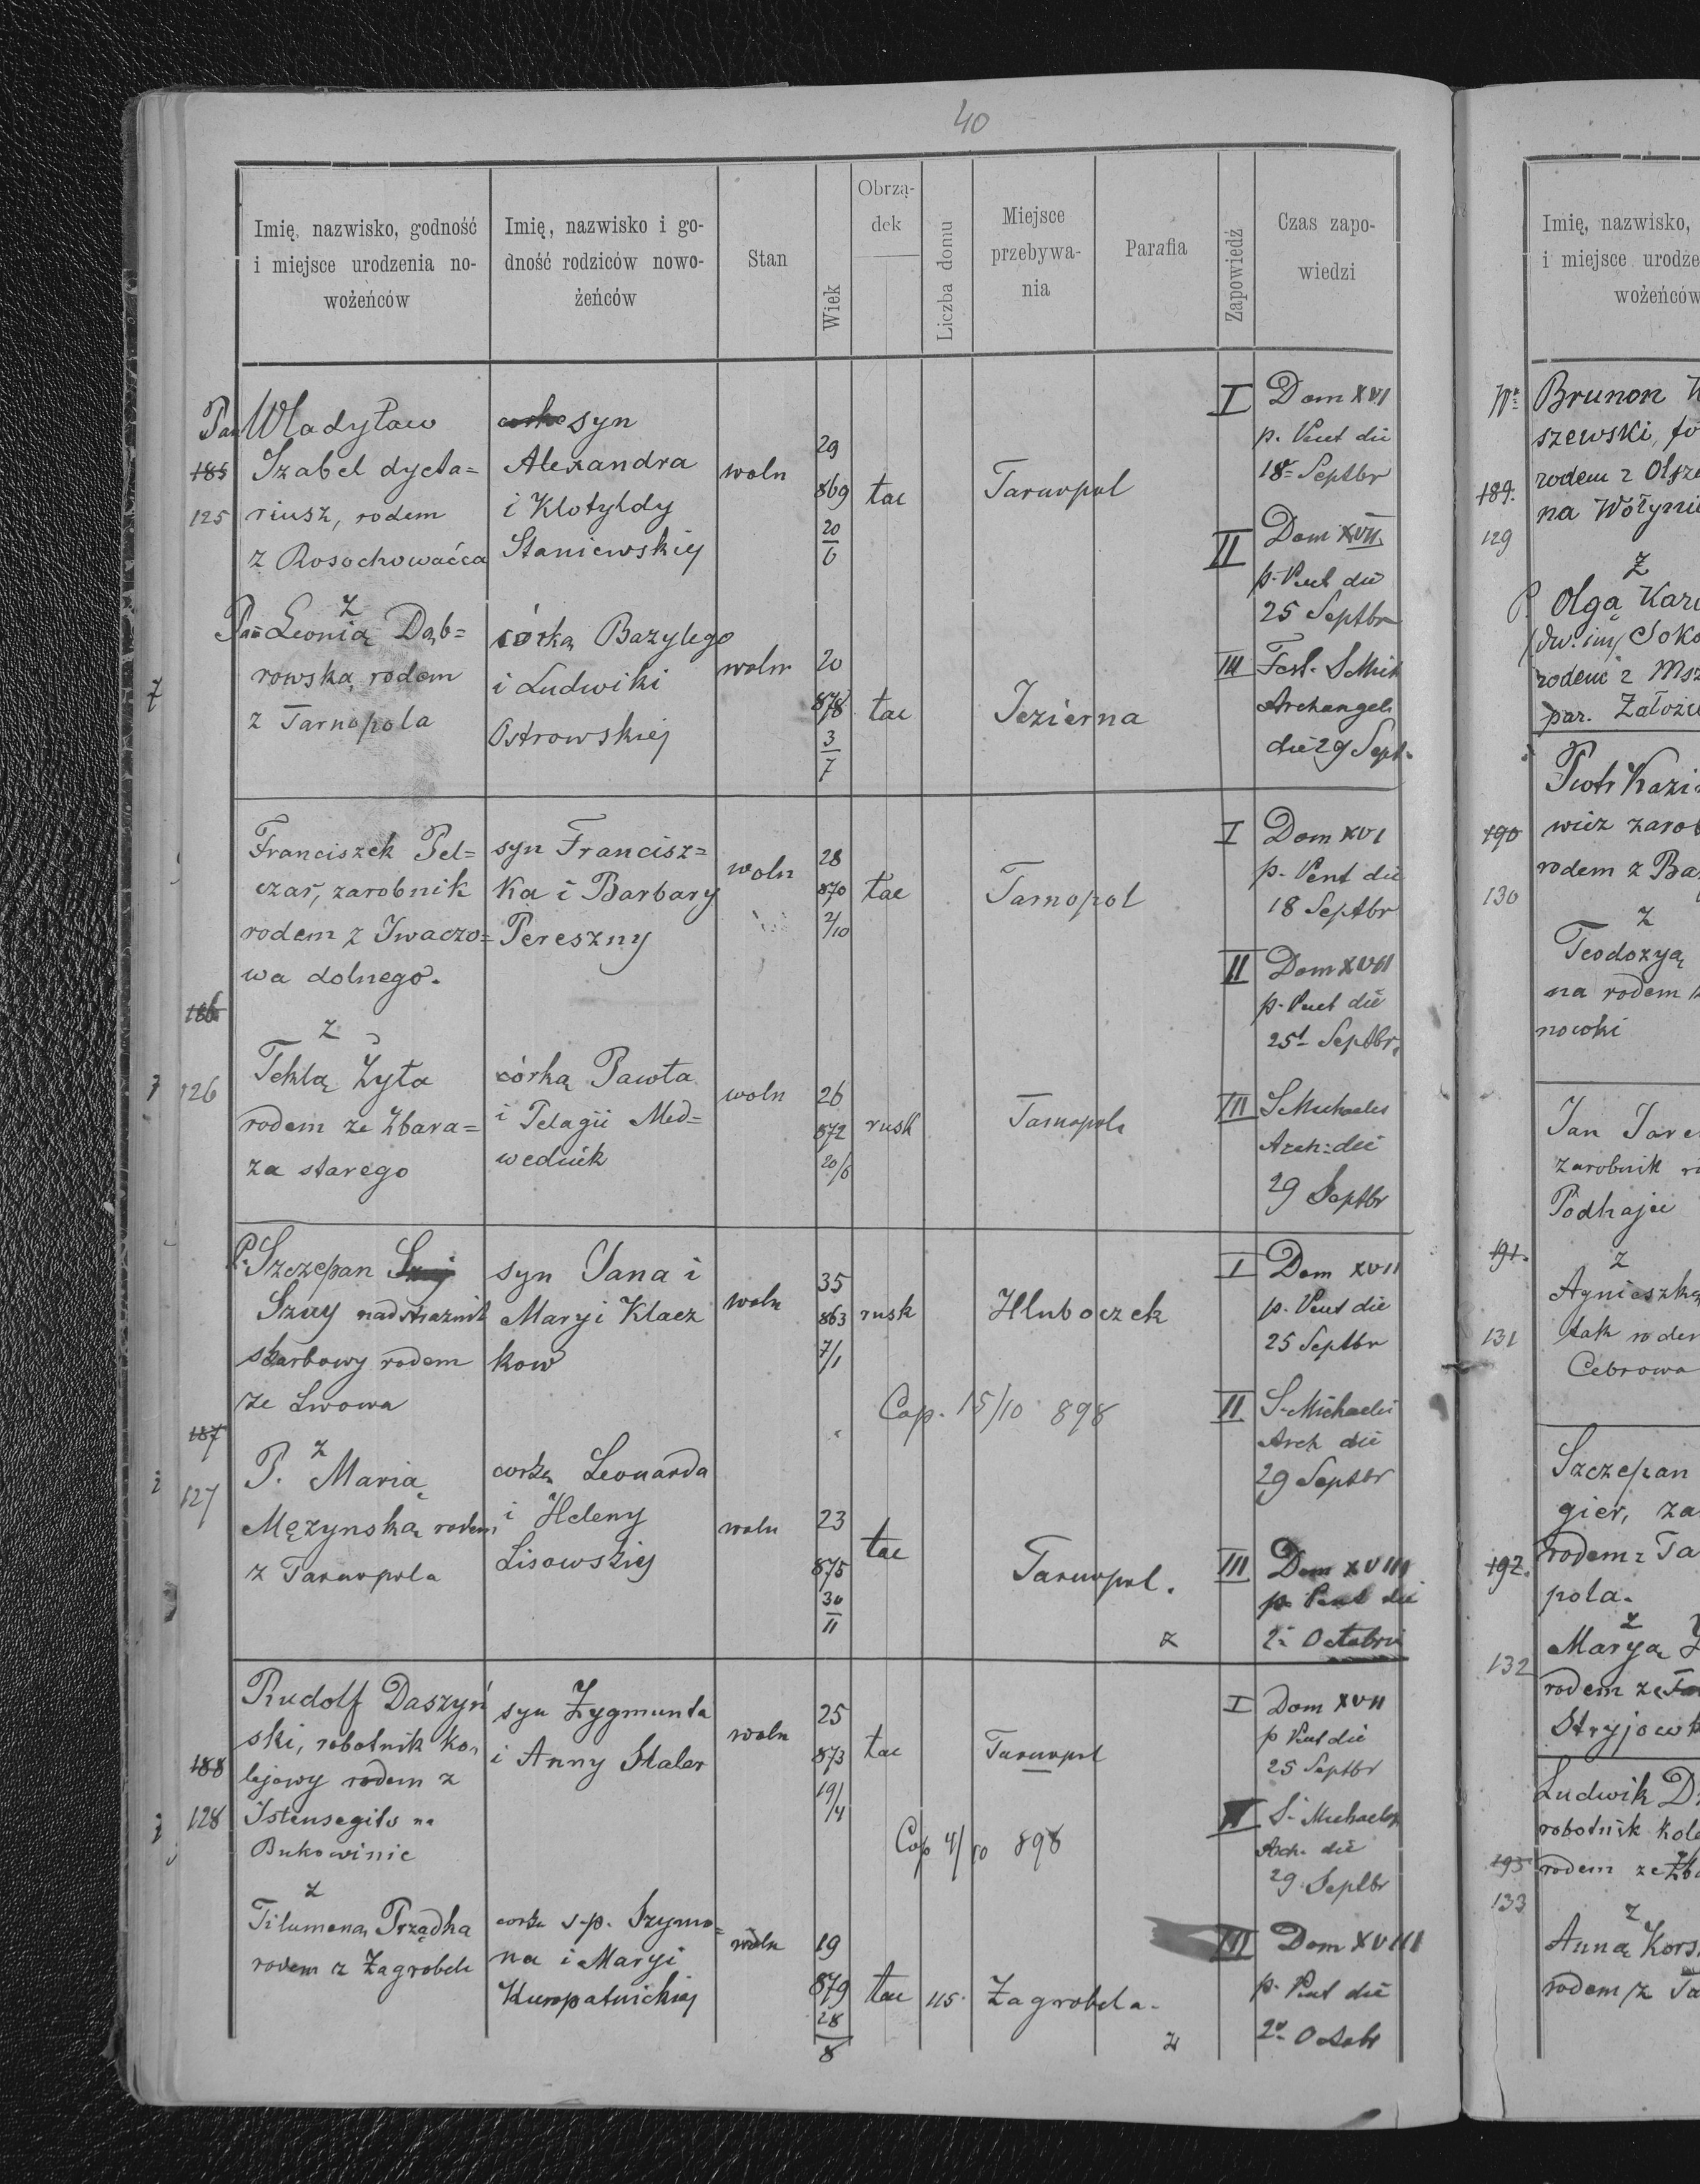 40
Imię, nazwisko, godność
i miejsce urodzenia no-
wożeńców
Imię, nazwisko i go-
dność rodziców nowo-
żeńców
Stan
Wiek
Obrzą-
dek
Liczba domu
Miejsce
przebywa-
nia
Parafia
Zapowiedź
Czas zapo-
wiedzi
Pan Władysław
185
125
Szabel dyeta=
riusz, rodem
z Rosochowaćca
syn
Alexandra
i Klotyldy
Staniewskiej
woln
29
869
20
6
łac
Tarnopol
I
Dom XVI
p. Pent die
18 Septbr
II
Dom XVII
p. Pent die
25 Septbr
z
Leonią Dąb=
rowską rodem
z Tarnopola
córką Bazylego
i Ludwiki
Ostrowskiej
woln
20
878
3
7
łac
Jezierna
III
Fest. S Mich
Archangeli
die 29 Sept.
Franciszek Pel=
czar, zarobnik
rodem z Iwaczo=
wa dolnego.
syn Francisz=
ka i Barbary
Pereszny
woln
28
870
2/10
łac
Tarnopol
I
Dom XVI
p. Pent die
18 Septbr
II
Dom XVII
p. Pent die
25 Septbr.
186
126
z
Teklą Zyta
rodem ze Zbara=
za starego
córką Pawła
i Pelagii Med=
weduik
woln
26
872
20/6
rusk
Tarnopol
III
S Michaelis
Arch. die
29 Septbr
P. Szczepan
Szuy nadstraznik
skarbowy rodem
ze Lwowa
syn Jana i
Maryi Klacz
kow
woln
35
863
7/1
rusk
Hluboczek
Cop. 15/10 898
I
Dom XVII
p. Pent die
25 Septbr
II
S. Michaelis
Arch die
29 Septbr
187
127
z
P. Marią
Męzynską rodem
z Tarnopola
corką Leonarda
i Heleny
Lisowskiej
woln
23
875
30
11
łac
Tarnopol.
III
Dom XVIII
p. Pent die
2 Octobris
Rudolf Daszyń
ski, robotnik ko
lejowy rodem z
Istensegits na
Bukowinie
188
128
syn Zygmunta
i Anny Staler
woln
25
873
19/4
łac
Tarnopol
Cop 4/10 898
I
Dom XVII
p Pent die
25 Septbr
II
S. Michaelis
Arch. die
29 Septbr
z
Filumeną Prządka
rodem z Zagrobeli
corką s.p. Szymo=
na i Maryi
Kuropatnickiej
woln
19
879
28
8
łac
115.
Zagrobela.
III
Dom XVIII
p. Pent die
2 Octobr
Imię, nazwisko,
i miejsce urodze
wożeńców
Brunon
szewski,
189.
129
rodem z
na Wołyniu
z
Olgą
rodem z
par.
Piotr
190
130
rodem z
z
Teodozyą
na rodem
Jan
zarobnik
191.
131
z
Agnieszką
Cebrowa
Szczepan
gier, za
192.
132
rodem z Ta
pola.
z
Maryą
rodem ze
Stryjowk
Ludwik
robotnik kol
193
133
rodem ze
z
Anną
rodem z Ta